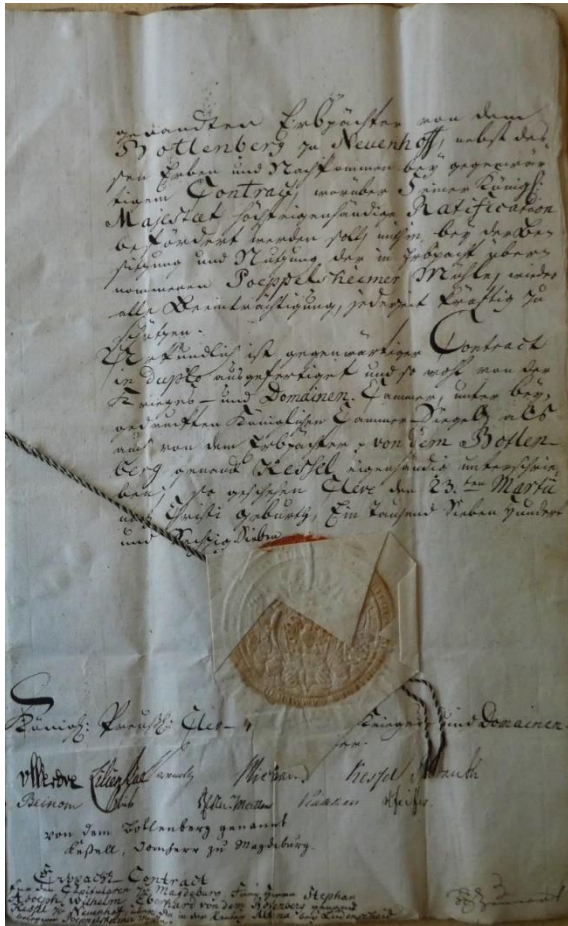 genandten Erbpächter von dem
Bottlenberg zu Neuenhoff, nebst des
sen Erben und Nachkommen bey gegenwär
tigem Contract, worüber Seiner Königl:
Majestæt höchsteigenhändige Ratification
befördert werden soll, auch bey der Be
sitzung und Nutzung der in Erbpacht über
nommenen Poeppelsheimer Mühle, wieder
alle Beinträchtigung, jederzeit kräftig zu
schützen.
Uhrkundlich ist gegenwärtiger Contract
in duplo ausgefertiget und so wohl von der
Krieges- und Domainen-Cammer, unter bey,
gedrucktem Königlichen Cammer-Siegel, als
auch von dem Erbpächter, von dem Botlen-
berg genand Kessel eigenhändig unterschrie
ben, so geschehen Cleve den 23.ten Martii
nach Christi Geburth, Ein tausend Sieben hundert
und Sechszig Sieben
Königl: Preuss: Clev- Krieges und Domainen-
Beinom
von dem Bottlenberg genannt
Kessell, Domherr zu Magdeburg.
Erbpacht-Contract
Für den Capitularen zu Magdeburg Herrn Stephan
Adolph Wilhelm Eberhard von dem Botlenberg genannt
Kessel zu Neuenhof, über die in der Altena bey Lüdenscheid
belegene Poeppelsheimer Mühle.